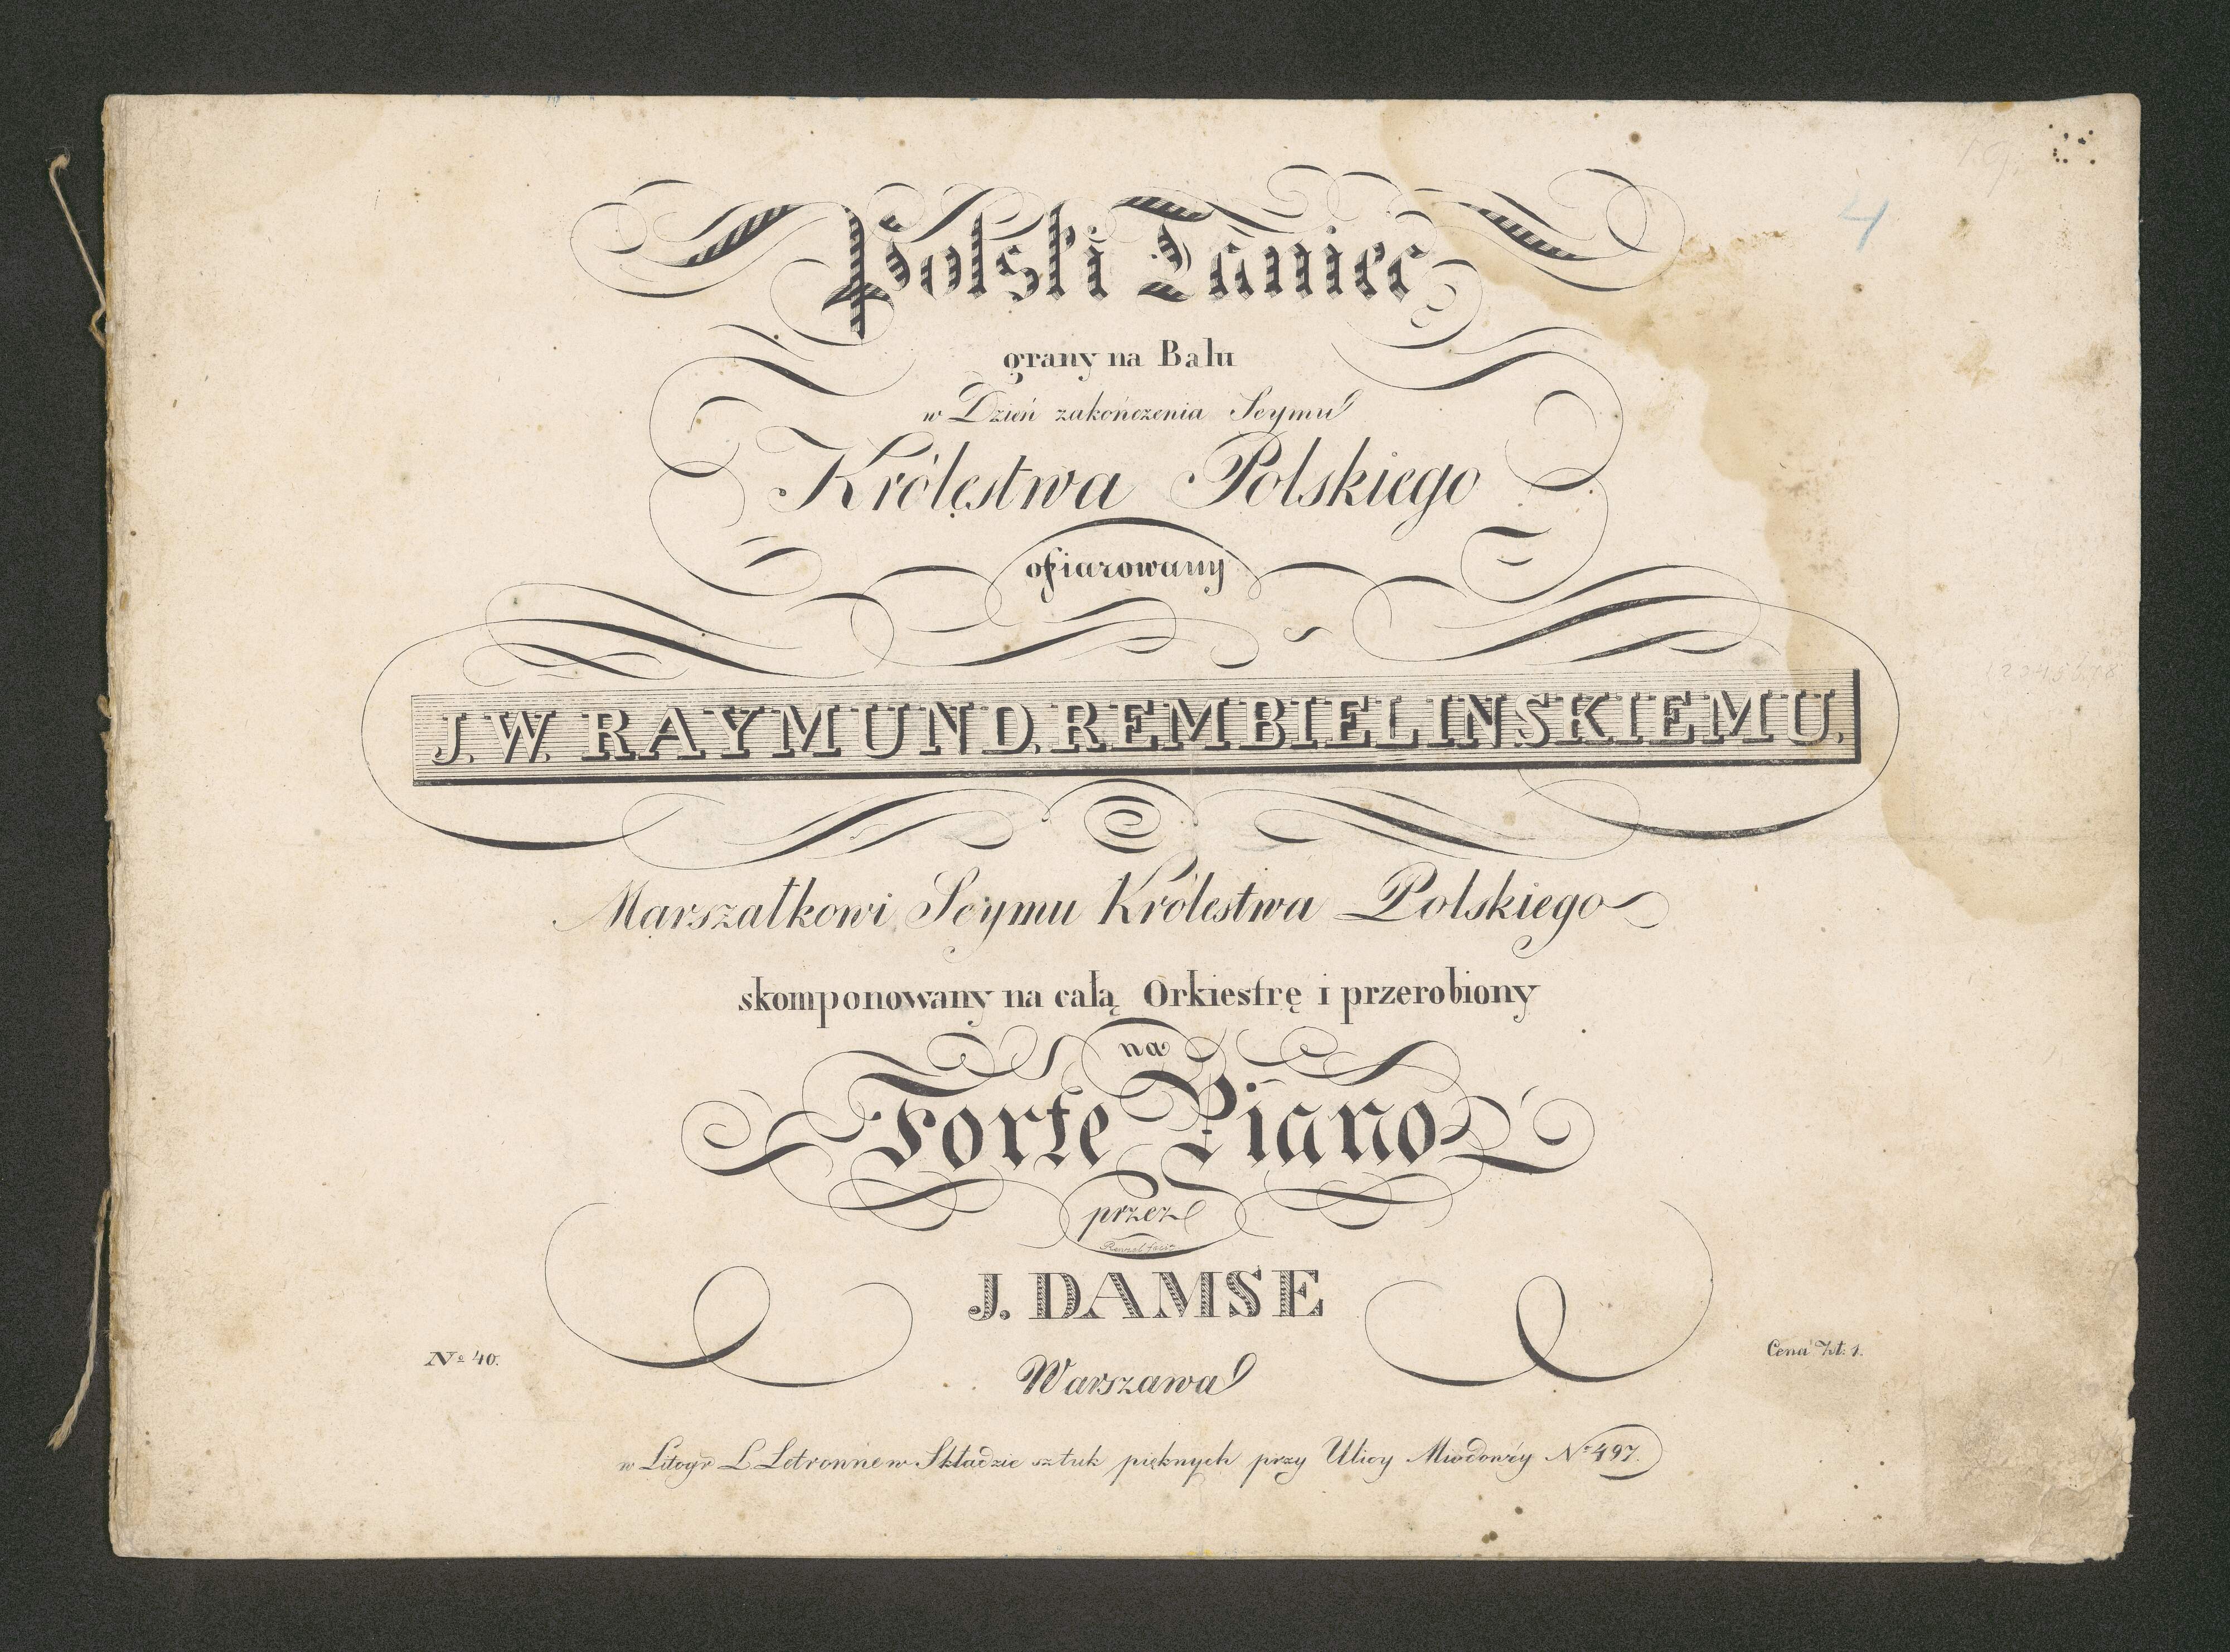 Polski Taniec
4
grany na Balu
w Dzień zakończenia Seymu
Królestwa Polskiego
ofiarowany
J. W. RAYMUND. REMBIELINSKIEMU.
Marszałkowi Seymu Królestwa Polskiego
skomponowany na całą Orkiestrę i przerobiony
na
Forte Piano
przez
J. DAMSE
No 40.
Cena Zł: 1.
Warszawa
w Litogr L Letronne w Składzie sztuk pięknych przy Ulicy Miodowéy No 497.